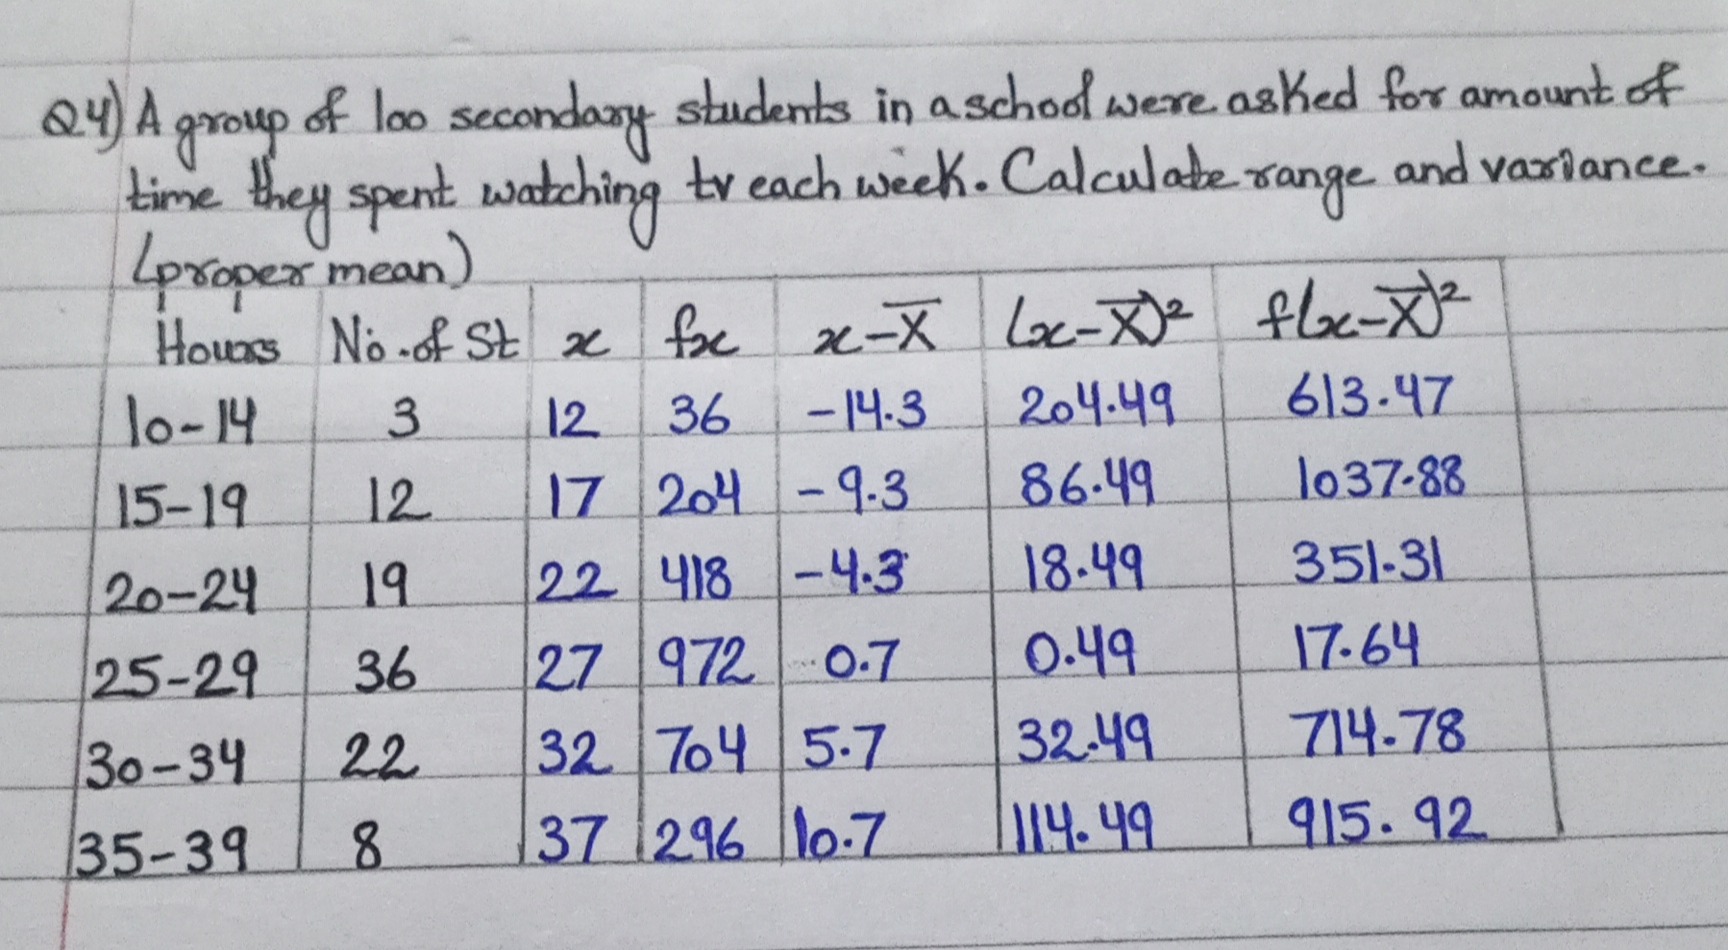 Q4) A group of 100 secondary students in a school were asked for amount of
time they spent watching tv each week. Calculate range and variance.
(proper mean)
Hours No. of St x fx x-X̅ (x-X̅)² f(x-X̅)²
10-14 3 12 36 -14.3 204.49 613.47
15-19 12 17 204 -9.3 86.49 1037.88
20-24 19 22 418 -4.3 18.49 351.31
25-29 36 27 972 0.7 0.49 17.64
30-34 22 32 704 5.7 32.49 714.78
35-39 8 37 296 10.7 114.49 915.92